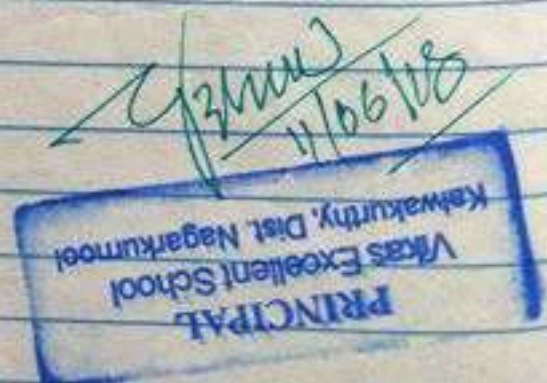 11/06/18
PRINCIPAL
Vikas Excellent School
Kalwakurthy, Dist. Nagarkurnool